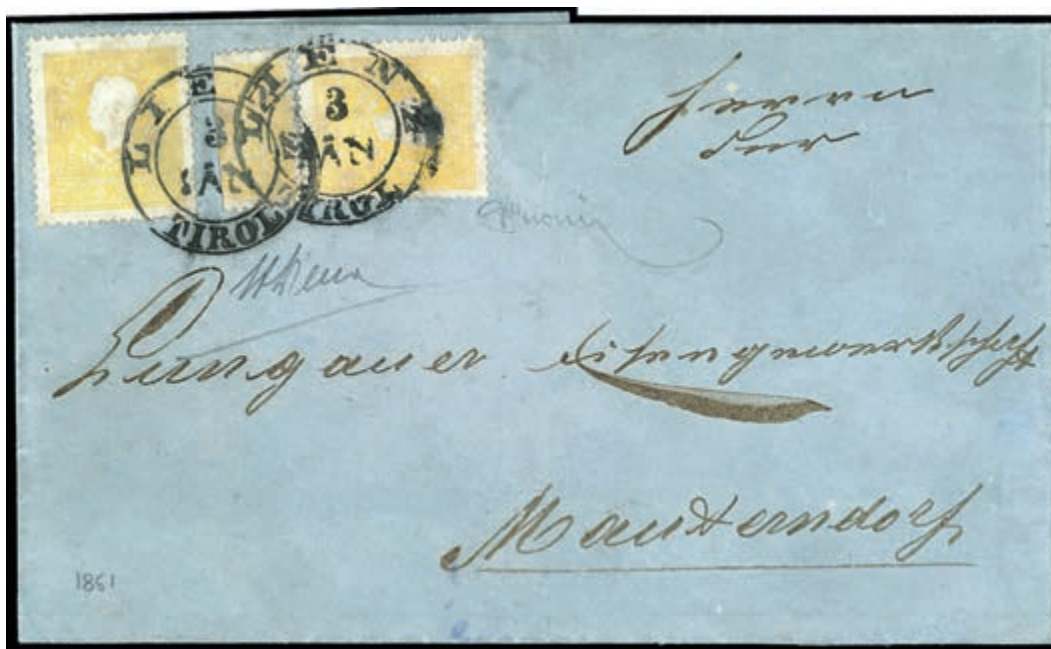 LIENZ
3
JÄN
TIROL
LIENZ
3
JÄN
TIROL
Herrn
der
Lungauer Eisengewerkschaft
Mauterndorf
1861